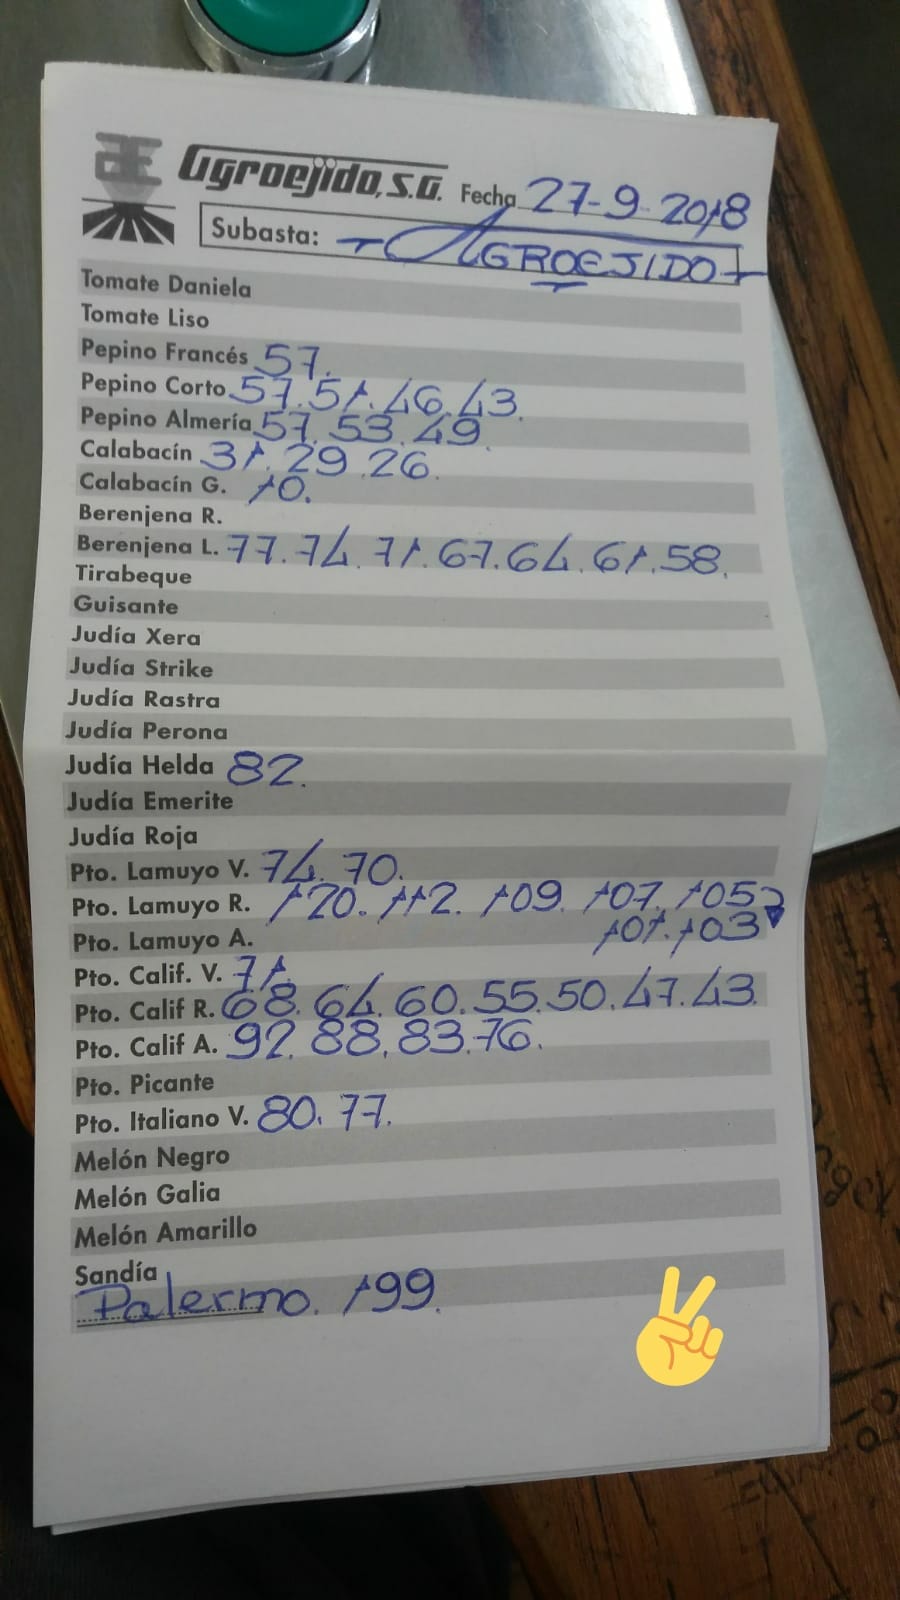 Agroejido, S.A. Fecha 27-9-2018
Subasta: AGROEJIDO
Tomate Daniela
Tomate Liso
Pepino Francés 57.
Pepino Corto 57. 51. 46. 43.
Pepino Almería 57. 53. 49.
Calabacín 31. 29. 26.
Calabacín G. 10.
Berenjena R.
Berenjena L. 77. 74. 71. 67. 64. 61. 58.
Tirabeque
Guisante
Judía Xera
Judía Strike
Judía Rastra
Judía Perona
Judía Helda 82.
Judía Emerite
Judía Roja
Pto. Lamuyo V. 74. 70.
Pto. Lamuyo R. 120. 112. 109. 107. 105
101. 103
Pto. Lamuyo A.
Pto. Calif. V. 71.
Pto. Calif R. 68. 64. 60. 55. 50. 47. 43.
Pto. Calif A. 92. 88. 83. 76.
Pto. Picante
Pto. Italiano V. 80. 77.
Melón Negro
Melón Galia
Melón Amarillo
Sandía
Palermo. 199.